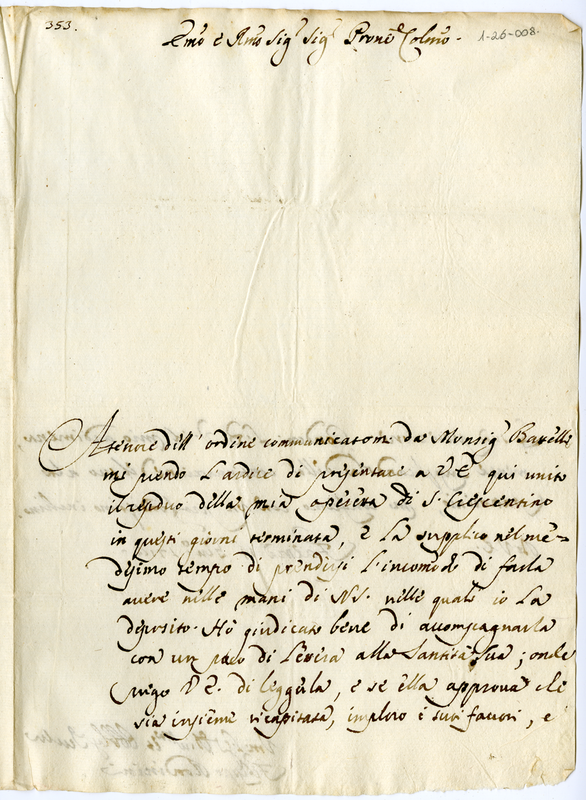 353.
Emo e Rmo Sigr Sigr Prone Colmo.
1-26-008.
A tenore dell' ordine communicatomi da Monsigr Batelli
mi prendo l'ardire di presentare a V E qui unito
il residuo della mia opereta di S. Crescentino
in questi giorni terminata, e la supplico nel me-
desimo tempo di prendersi l'incomodo di farla
avere nelle mani di NS. nelle quali io la
deposito. Hò giudicato bene di accompagnarla
con un poco di letera alla Santità Sua; onde
prego V E. di leggerla, e se ella approva che
sia insieme ricapitata, imploro i suoi favori, e